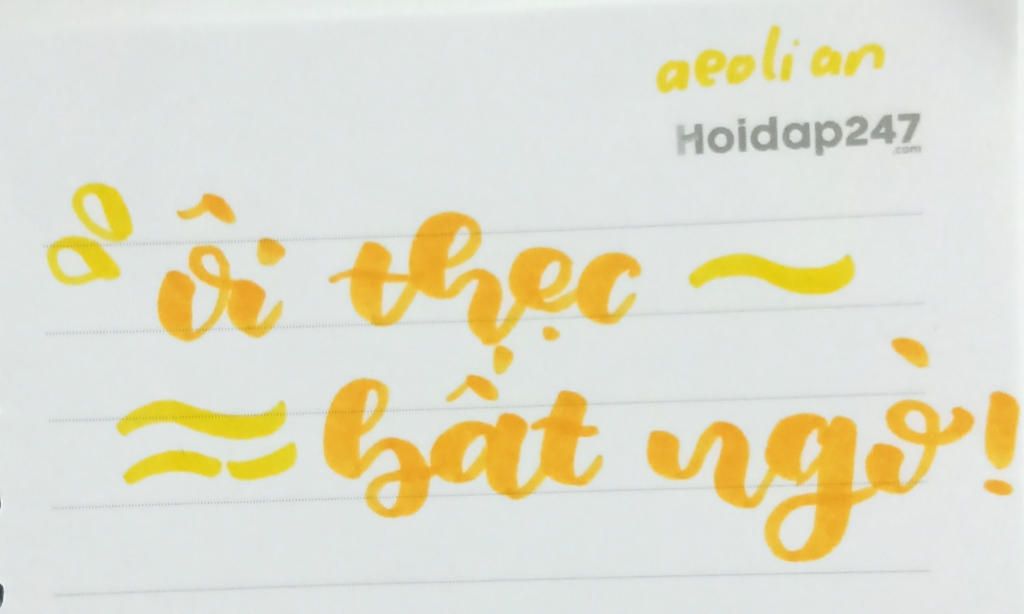 aeolian
Hoidap247
.com
ôi thẹc
bất ngờ!